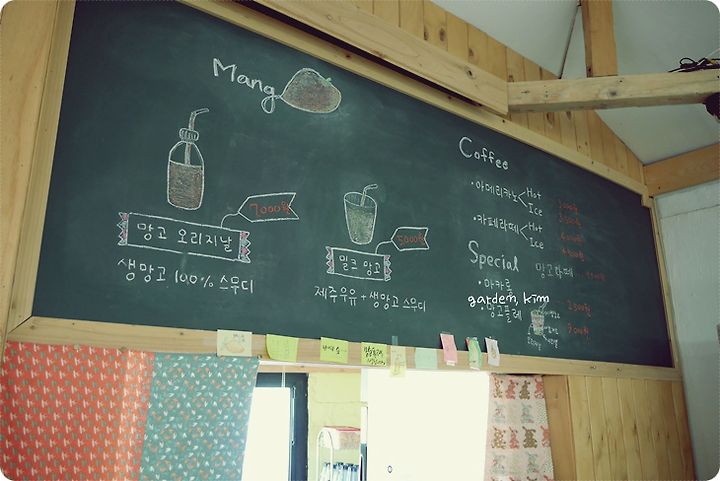 Mang
7000원
망고 오리지날
생망고 100% 스무디
5000원
밀크 망고
제주우유 + 생망고 스무디
Coffee
· 아메리카노 Hot
Ice
· 카페라떼 Hot
Ice
Special 망고라떼
· 마카롱
garden, kim
· 망고플레